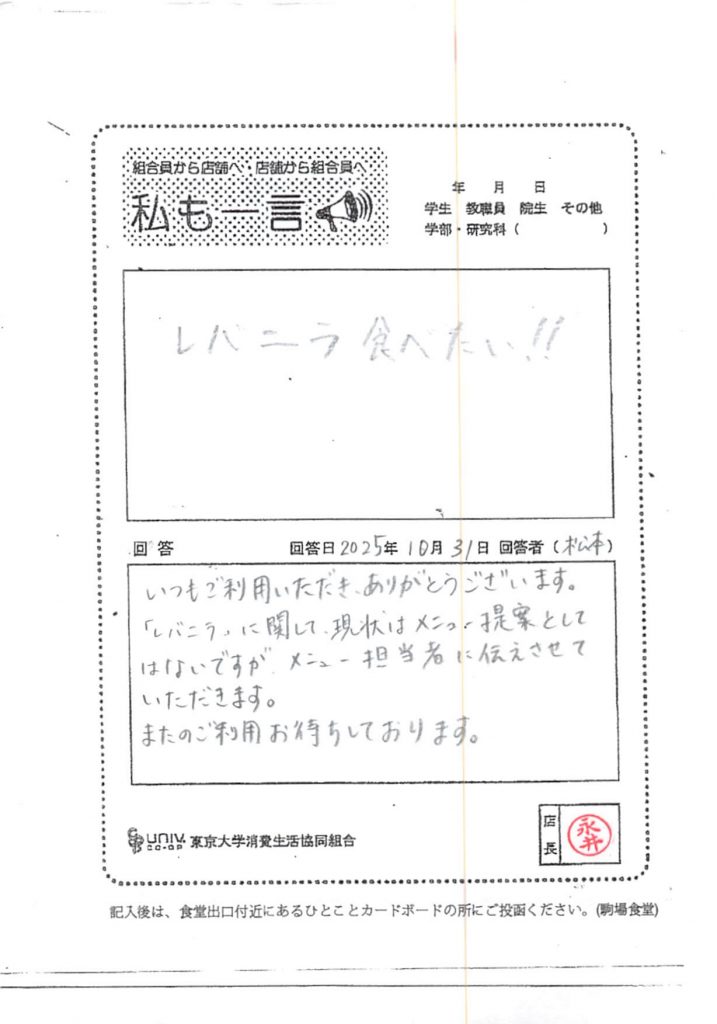 組合員から店舗へ・店舗から組合員へ
私も一言
年 月 日
学生 教職員 院生 その他
学部・研究科 ( )
レバニラ食べたい!!
回答 回答日 2025年 10月 31日 回答者 (松本)
いつもご利用いただき、ありがとうございます。
「レバニラ」に関して、現状はメニュー提案として
はないですが、メニュー担当者に伝えさせて
いただきます。
またのご利用お待ちしております。
UNIV. CO-OP 東京大学消費生活協同組合
店長
永井
記入後は、食堂出口付近にあるひとことカードボードの所にご投函ください。(駒場食堂)